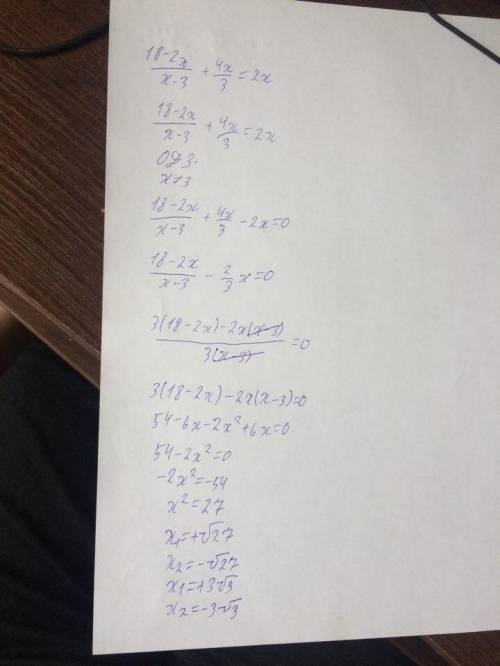 (18-2x)/(x-3) + 4x/3 = 2x
(18-2x)/(x-3) + 4x/3 = 2x
ОДЗ.
x≠3
(18-2x)/(x-3) + 4x/3 - 2x=0
(18-2x)/(x-3) - 2/3 x=0
(3(18-2x)-2x(x-3))/(3(x-3)) =0
3(18-2x)-2x(x-3)=0
54-6x-2x²+6x=0
54-2x²=0
-2x²=-54
x²=27
x₁=+√27
x₂=-√27
x₁=+3√3
x₂=-3√3